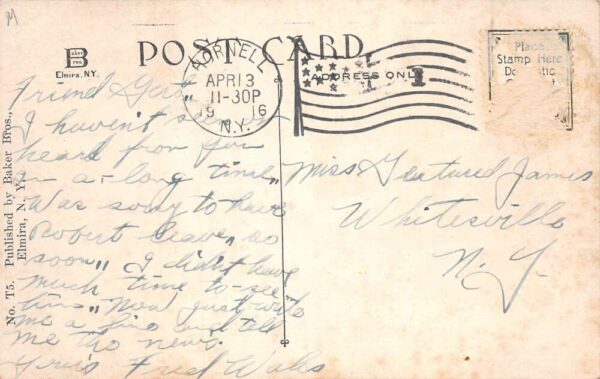 M
Baker Bros
Elmira, N.Y.
POST CARD
HORNELL
APR 13
11-30P
1916
N.Y.
ADDRESS ONLY
Place
Stamp Here
Domestic
No. T5. Published by Baker Bros.,
Elmira, N. Y.
Friend Gert"
I haven't
heard from you
in a-long time"
Was sorry to have
Robert leave, so
soon" I didn't have
much time to-see
him" Now just write
me a line and tell
me the news.
Yours Fred Wales
Miss Geatured James
Whitesville
N. Y.